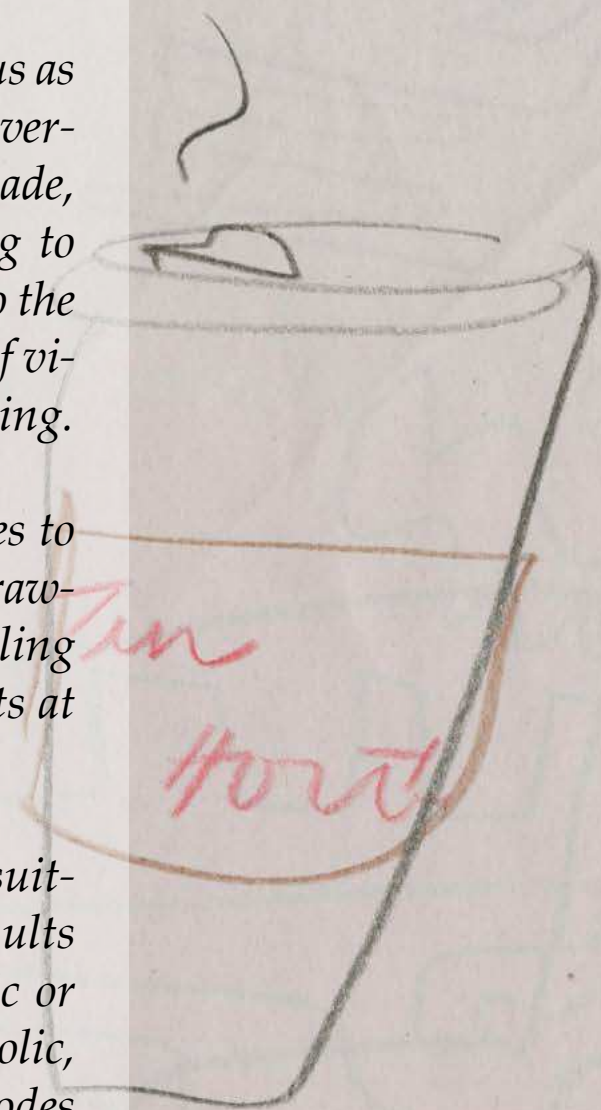 us as
ver-
ade,
g to
o the
f vi-
ing.
es to
raw-
ling
ts at
suit-
ults
c or
olic,
odes
Tim
Hort